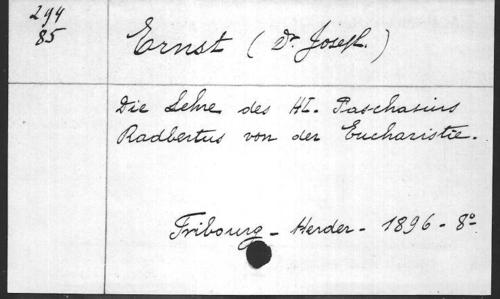 294
85
Ernst (Dr Josef.)
Die Lehre des Hl. Paschasius
Radbertus von der Eucharistie.
Fribourg - Herder - 1896 - 8º